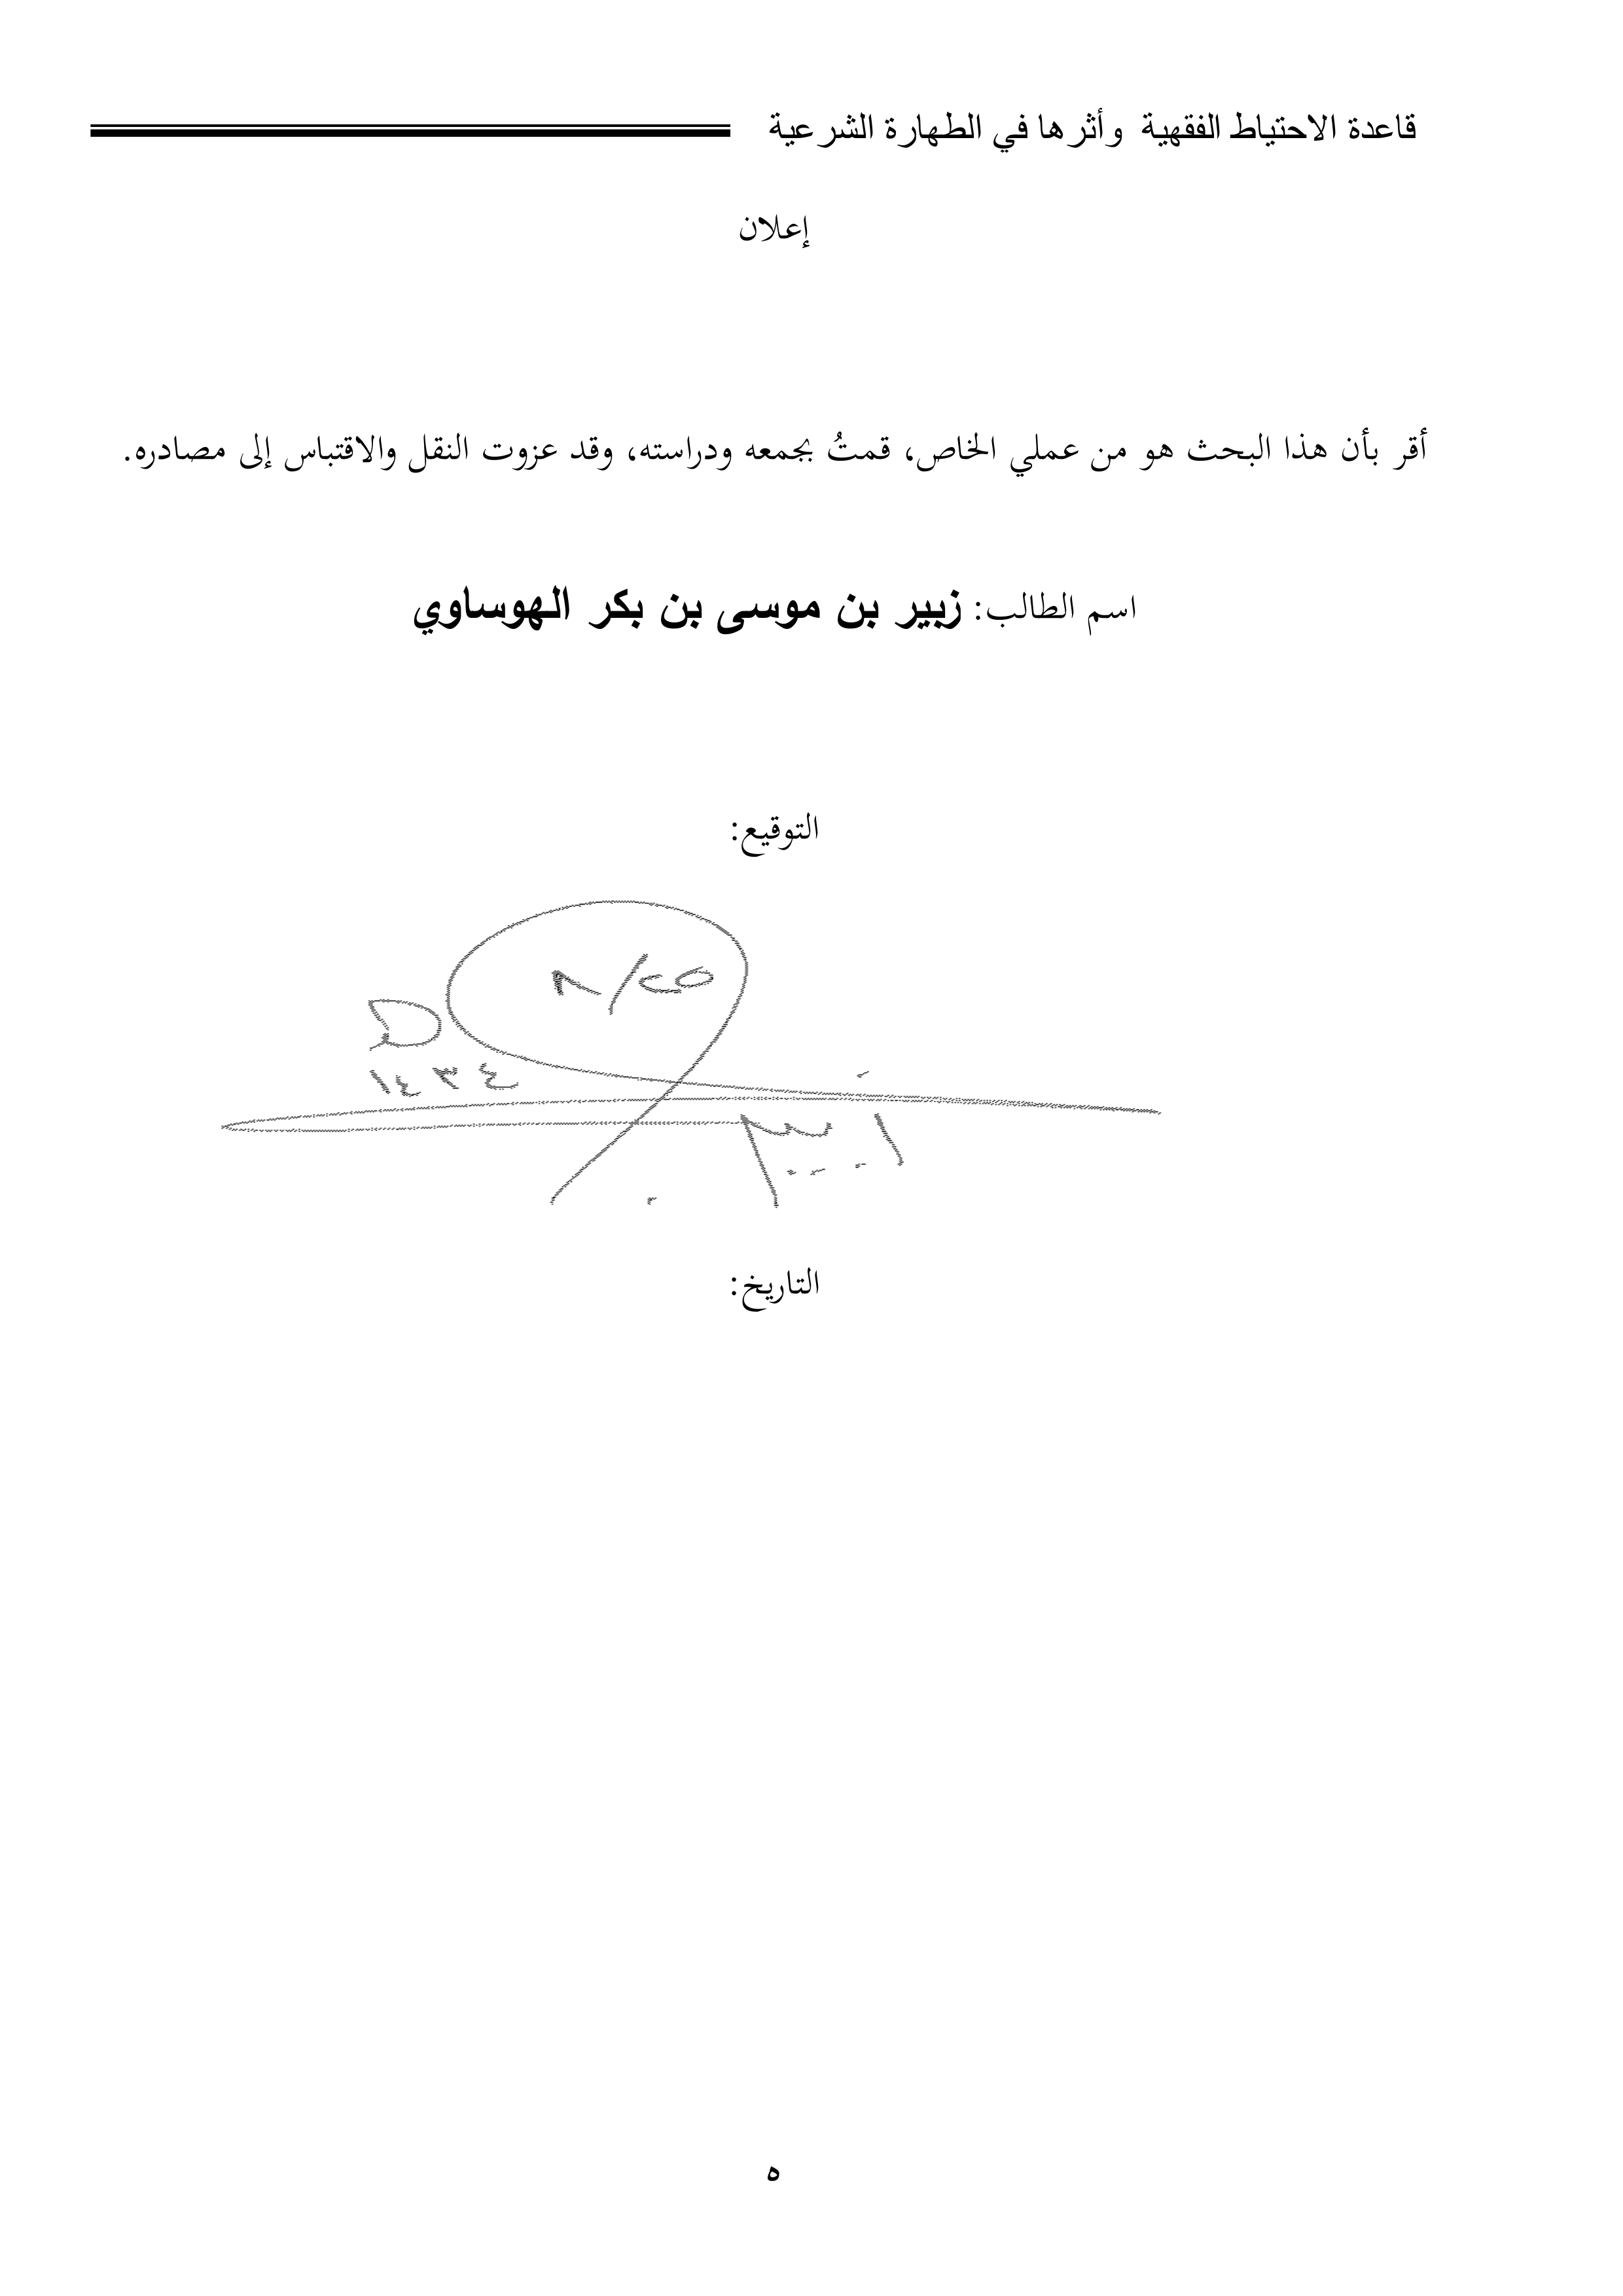 قاعدة الاحتياط الفقهية وأثرها في الطهارة الشرعية
إعلان
أقر بأن هذا البحث هو من عملي الخاص، قمتُ بجمعه ودراسته، وقد عزوت النقل والاقتباس إلى مصادره.
اسم الطالب: زبير بن موسى بن بكر الهوساوي
التوقيع:
١٤٣٤
التاريخ:
٥